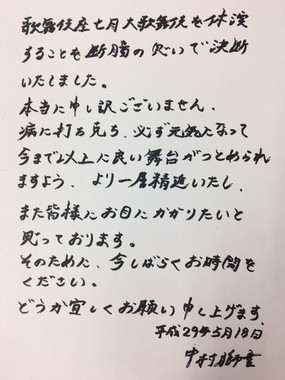 歌舞伎座七月大歌舞伎も休演
することも断腸の思いで決断
いたしました。
本当に申し訳ございません。
病に打ち克ち、必ず元気になって
今まで以上に良い舞台がつとめられ
ますよう、より一層精進いたし、
また皆様にお目にかかりたいと
思っております。
そのために、今しばらくお時間を
ください。
どうか宜しくお願い申し上げます。
平成29年5月18日
中村獅童